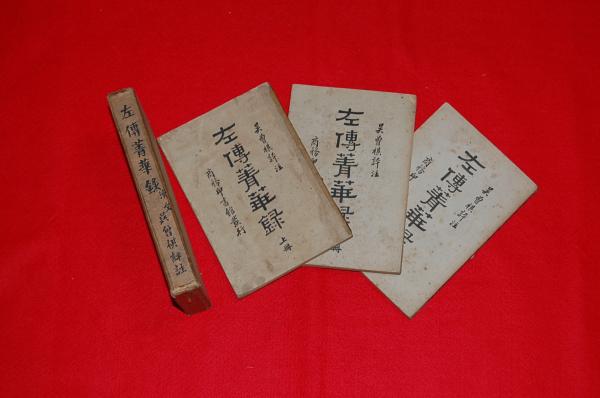 左傳菁華錄
吳曾祺評註
吳曾祺評注
左傳菁華録
上冊
商務印書館發行
吳曾祺評注
左傳菁華録
冊
商務印
吳曾祺評注
左傳菁華録
商務印